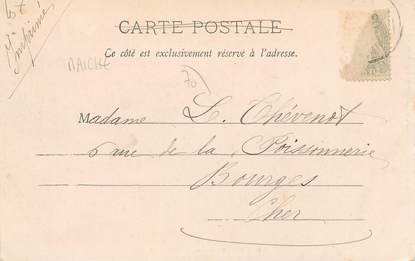 Imprimé
CARTE POSTALE
Ce côté est exclusivement réservé à l'adresse.
MAICHE
70
Madame L. Thévenot
6 rue de la Poissonnerie
Bourges
Cher